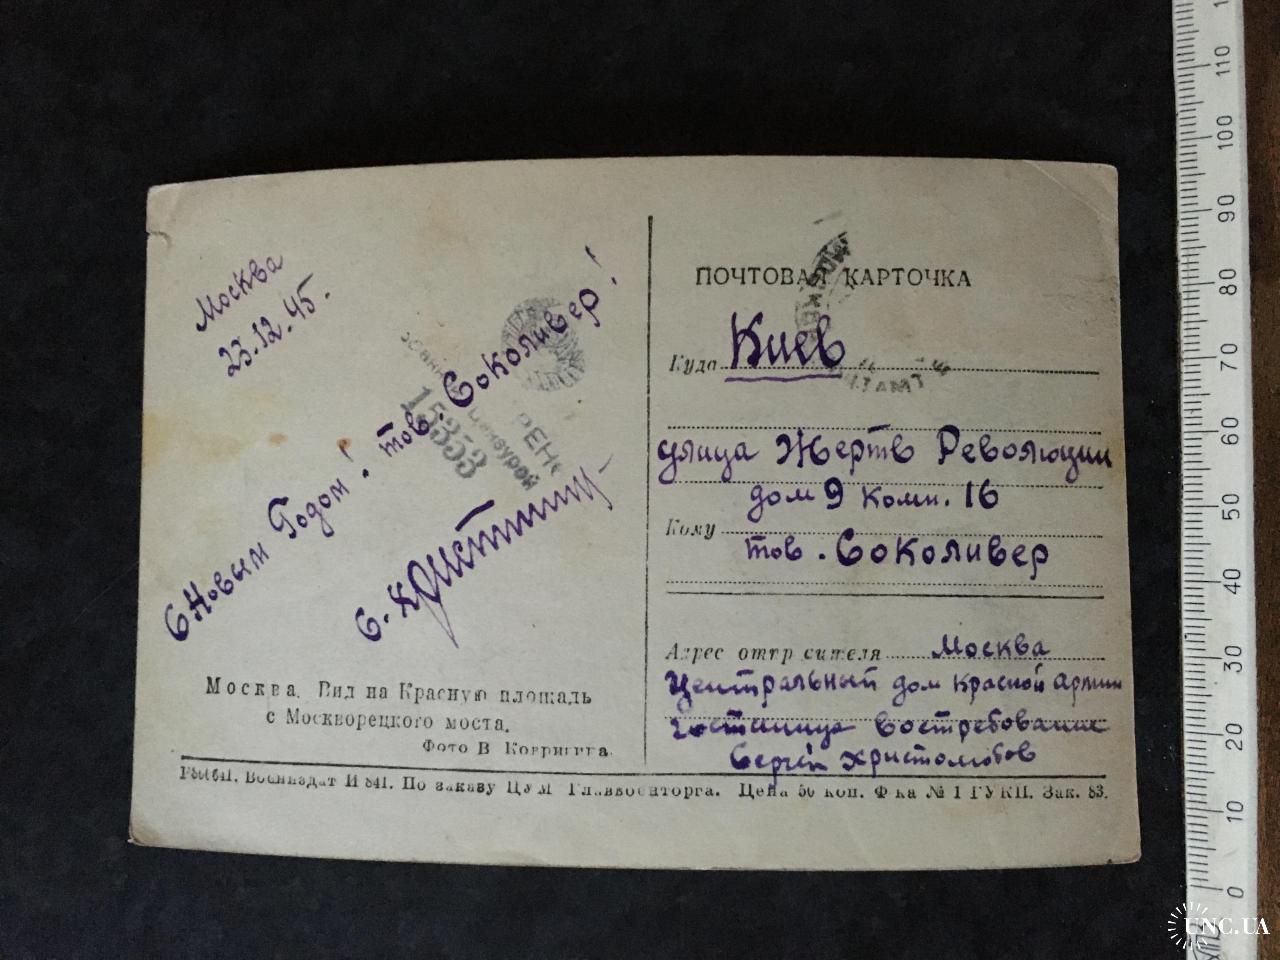 Москва
23.12.45.
С Новым Годом! тов. Соколивер!
15353
Цензурой
Москва. Вид на Красную площадь
с Москворецкого моста.
Фото В
ПОЧТОВАЯ КАРТОЧКА
Куда Киев
улица Жертв Революции
дом 9 комн. 16
Кому
тов. Соколивер
Адрес отправителя Москва
Центральный дом Красной армии
гостиница востребование
Сергей Христолюбов
Воениздат И 841. По заказу ЦУМ Главвоенторга. Цена 50 коп. Ф-ка № 1 ГУКП. Зак. 83.
0 10 20 30 40 50 60 70 80 90 100 110
UNC.UA